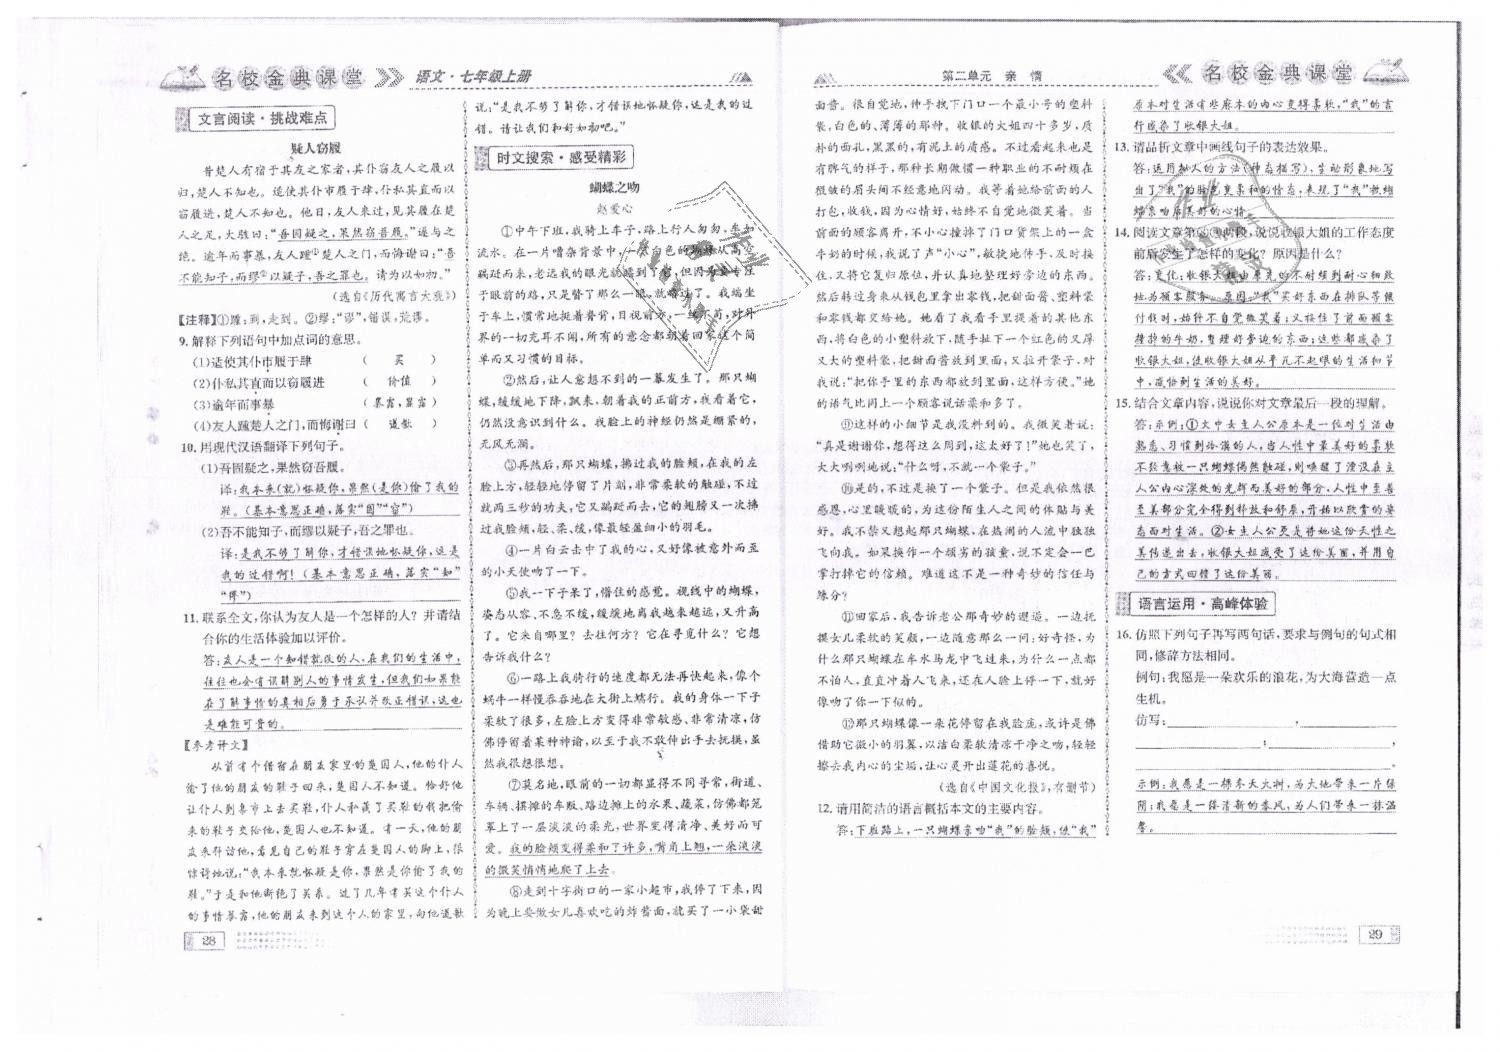 名校金典课堂 语文·七年级上册
文言阅读·挑战难点
疑人窃履
昔楚人有宿于其友之家者,其仆窃友人之履以
归,楚人不知也。适使其仆市履于肆,仆私其直而以
窃履进,楚人不知也。他日,友人来过,见其履在楚
人之足,大骇曰:“吾固疑之,果然窃吾履。”遂与之
绝。逾年而事暴,友人踵①楚人之门,而悔谢曰:“吾
不能知子,而缪②以疑子,吾之罪也。请为以如初。”
(选自《历代寓言大观》)
【注释】①踵:到,走到。②缪:“谬”,错误,荒谬。
9. 解释下列语句中加点词的意思。
(1)适使其仆市履于肆 ( 买 )
(2)仆私其直而以窃履进 ( 价值 )
(3)逾年而事暴 ( 暴露,显露 )
(4)友人踵楚人之门,而悔谢曰 ( 道歉 )
10. 用现代汉语翻译下列句子。
(1)吾固疑之,果然窃吾履。
译:我本来(就)怀疑你,果然(是你)偷了我的
鞋。(基本意思正确,落实“固”“窃”)
(2)吾不能知子,而缪以疑子,吾之罪也。
译:是我不够了解你,才错误地怀疑你,这是
我的过错啊!(基本意思正确,落实“知”
“缪”)
11. 联系全文,你认为友人是一个怎样的人?并请结
合你的生活体验加以评价。
答:友人是一个知错就改的人,在我们的生活中,
往往也会有误解别人的事情发生,但我们如果能
在了解事情的真相后勇于承认并改正错误,这也
是难能可贵的。
【参考译文】
从前有个借宿在朋友家里的楚国人,他的仆人
偷了他的朋友的鞋子回来,楚国人不知道。恰好他
让仆人到集市上去买鞋,仆人私藏了买鞋的钱把偷
来的鞋子交给他,楚国人也不知道。有一天,他的朋
友来拜访他,看见自己的鞋子穿在楚国人的脚上,很
惊讶地说:“我本来就怀疑是你,果然是你偷了我的
鞋。”于是和他断绝了关系。过了几年有买这个仆人
的事情暴露,他的朋友来到这个人的家里,向他道歉
28
说:“是我不够了解你,才错误地怀疑你,这是我的过
错。请让我们和好如初吧。”
时文搜索·感受精彩
蝴蝶之吻
赵爱心
①中午下班,我骑上车子,路上行人匆匆,车如
流水。在一片嘈杂背景中,一
踽跹而来,老远我的眼光就
于眼前的路,只是瞥了那么一眼,就略过了。我端坐
于车上,惯常地挺着脊背,目视前方,一丝不苟,对外
界的一切充耳不闻,所有的意念都朝着回家这个简
单而又习惯的目标。
②然后,让人意想不到的一幕发生了。那只蝴
蝶,缓缓地下降,飘来,朝着我的正前方,我看着它,
仍然没意识到什么。我脸上的神经仍然是绷紧的,
无风无澜。
③再然后,那只蝴蝶,拂过我的脸颊,在我的左
脸上方,轻轻地停留了片刻,非常柔软的触碰,不过
就两三秒的功夫,它又踽跹而去;它的翅膀又一次拂
过我脸颊,轻、柔、缓,像最轻盈细小的羽毛。
④一片白云击中了我的心,又好像被意外而至
的小天使吻了一下。
⑤我一下子呆了,懵住的感觉。视线中的蝴蝶,
姿态从容、不急不缓,缓缓地离我越来越远,又升高
了。它来自哪里?去往何方?它在寻觅什么?它想
告诉我什么?
⑥一路上我骑行的速度都无法再快起来,像个
蜗牛一样慢吞吞地在大街上蠕行。我的身体一下子
柔软了很多,左脸上方变得非常敏感、非常清凉,仿
佛停留着某种神谕,以至于我不敢伸出手去抚摸,虽
然我很想很想。
⑦莫名地,眼前的一切都显得不同寻常,街道、
车辆、摆摊的车贩、路边摊上的水果、蔬菜,仿佛都笼
罩上了一层淡淡的柔光,世界变得清净、美好而可
爱。我的脸颊变得柔和了许多,嘴角上翘,一朵淡淡
的微笑悄悄地爬了上去。
⑧走到十字街口的一家小超市,我停了下来,因
为晚上要做女儿喜欢吃的炸酱面,就买了一小袋甜
第二单元 亲 情 名校金典课堂
面酱。很自觉地,伸手找下门口一个最小号的塑料
袋,白色的、薄薄的那种。收银的大姐四十多岁,质
朴的面孔,黑黑的,有泥土的质感。不过看起来也是
有脾气的样子,那种长期做惯一种职业的不耐烦在
微皱的眉头间不经意地闪动。我等着给前面的人
打包,收钱,因为心情好,始终不自觉地微笑着。当
前面的顾客离开,不小心撞掉了门口货架上的一盒
牛奶的时候,我说了声“小心”,敏捷地伸手,及时接
住,又将它复归原位,并认真地整理好旁边的东西。
然后转过身来从钱包里拿出零钱,把甜面酱、塑料袋
和零钱都交给她。她看了看手里提着的其他东
西,将白色的小塑料袋放下,随手扯下一个红色的又厚
又大的塑料袋,把甜面酱放到里面,又拉开袋子,对
我说:“把你手里的东西都放到里面,这样方便。”她
的语气比同上一个顾客说话柔和多了。
⑨这样的小细节是我没料到的。我微笑着说:
“真是谢谢你,想得这么周到,这太好了!”她也笑了,
大大咧咧地说:“什么呀,不就一个袋子。”
⑩是的,不过是换了一个袋子。但是我依然很
感恩,心里暖暖的,为这份陌生人之间的体贴与美
好。我不禁又想起那只蝴蝶,在热闹的人流中独独
飞向我。如果换作一个顽劣的孩童,说不定一个巴
掌打掉它的信赖。难道这不是一种奇妙的信任与
缘分?
⑪回家后,我告诉老公那奇妙的邂逅。一边抚
摸女儿柔软的笑颜,一边随意那么一问:好奇怪,为
什么那只蝴蝶在车水马龙中飞过来,为什么一点都
不怕人,直直冲着人飞来,还在人脸上停一下,就好
像吻了一下似的。
⑫那只蝴蝶像一朵花停留在我脸庞,或许是佛
借助它微小的羽翼,以洁白柔软清凉干净之吻,轻轻
擦去我内心的尘垢,让心灵开出莲花的喜悦。
(选自《中国文化报》,有删节)
12. 请用简洁的语言概括本文的主要内容。
答:下班路上,一只蝴蝶亲吻“我”的脸颊,使“我”
原本对生活有些麻木的内心变得柔软,“我”的言
行感染了收银大姐。
13. 请品析文章中画线句子的表达效果。
答:运用拟人的方法(神态描写),生动形象地写
出了“我”的脸色变柔和的情态,表现了“我”被蝴
蝶亲吻后美好的心情。
14. 阅读文章第⑧⑨两段,说说收银大姐的工作态度
前后发生了怎样的变化?原因是什么?
答:变化:收银大姐由原先的不耐烦到耐心细致
地为顾客服务。原因:“我”买好东西在排队等候
付钱时,始终不自觉微笑着;又接住了前面顾客
撞掉的牛奶,整理好旁边的东西;这些都感染了
收银大姐,使收银大姐从平凡不起眼的生活和节
中,感悟到生活的美好。
15. 结合文章内容,说说你对文章最后一段的理解。
答:示例:①文中女主人公原本是一位对生活由
熟悉、习惯到冷漠的人,当人性中最美好的柔软
不经意被一只蝴蝶偶然触碰,则唤醒了潜没在主
人公内心深处的光辉而美好的部分,人性中至善
至美部分完全得到释放和舒展,开始以欣赏的姿
态面对生活。②女主人公更是将这份天性之
美传递出去,收银大姐感受了这份美丽,并用自
己的方式回馈了这份美丽。
语言运用·高峰体验
16. 仿照下列句子再写两句话,要求与例句的句式相
同,修辞方法相同。
例句:我愿是一朵欢乐的浪花,为大海营造一点
生机。
仿写: , 
;
, 。
示例:我愿是一棵参天大树,为大地带来一片绿
阴;我愿是一缕清新的春风,为人们带来一抹温
馨。
29